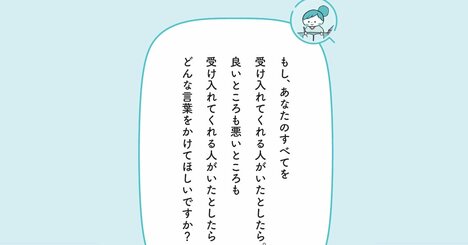 もし、あなたのすべてを
受け入れてくれる人がいたとしたら。
良いところも悪いところも
受け入れてくれる人がいたとしたら
どんな言葉をかけてほしいですか？